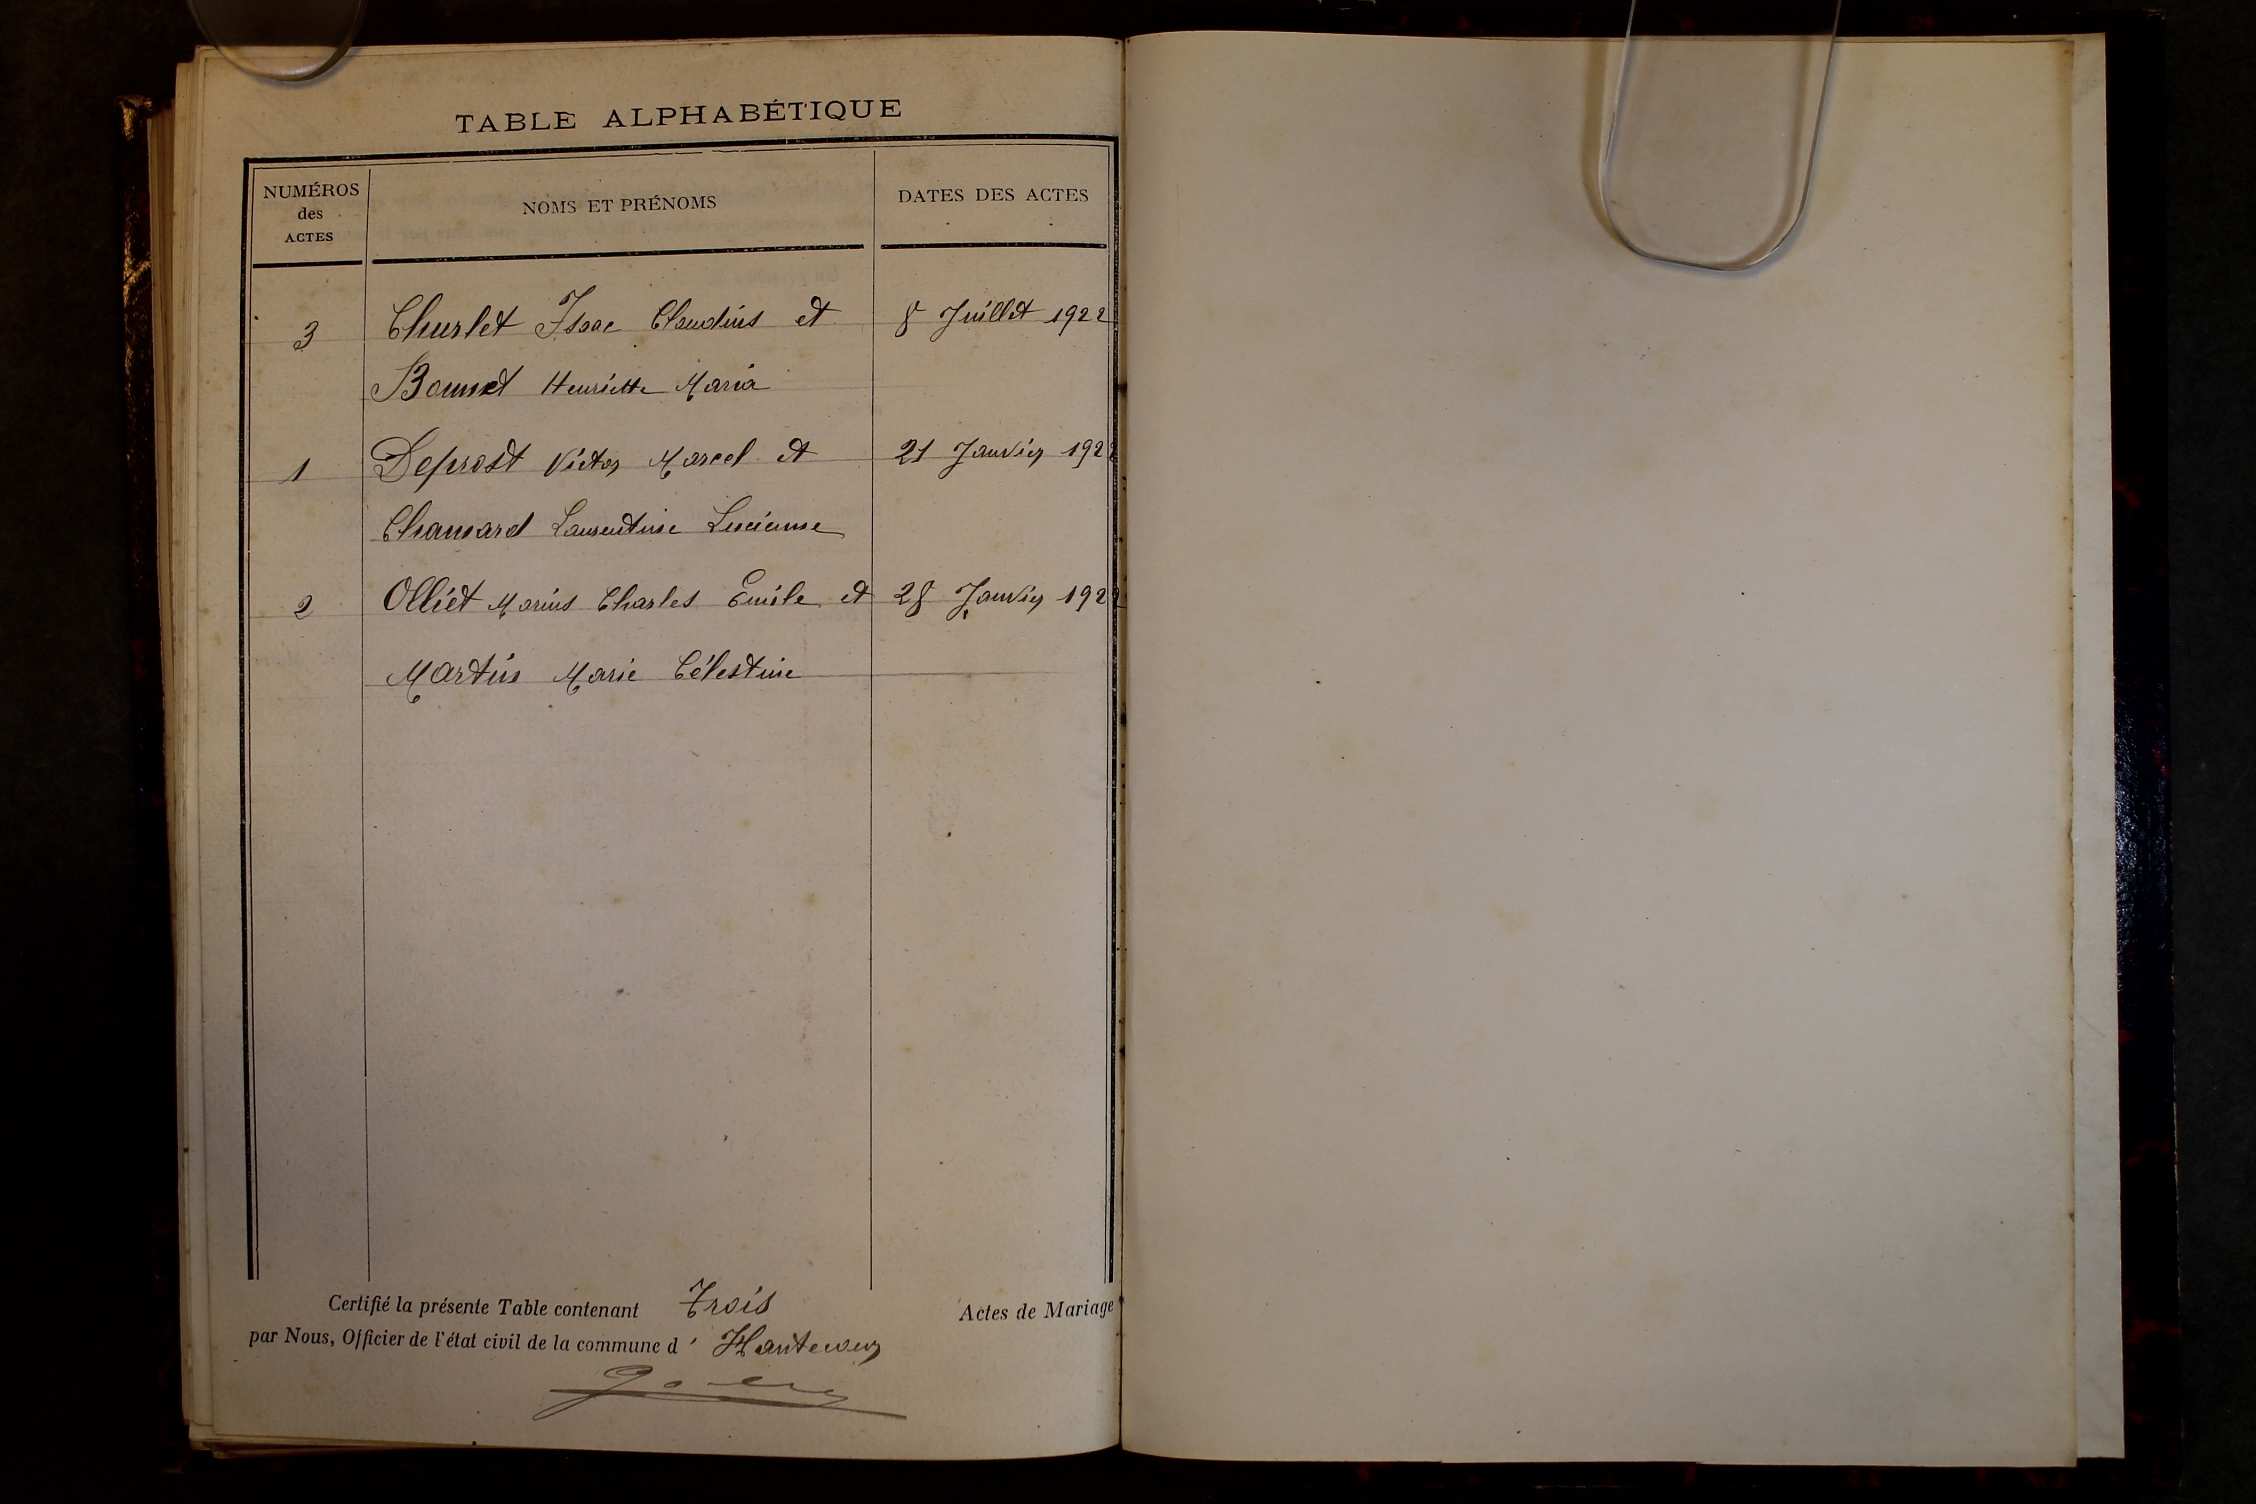 TABLE ALPHABÉTIQUE
NUMÉROS des ACTES
NOMS ET PRÉNOMS
DATES DES ACTES
3 Churlet Isaac Claudius et 8 Juillet 1922
Bonnet Henriette Maria
1 Deprost Victor Marcel et 21 Janvier 1922
Chamard Laurentine Lucienne
2 Olliet Marius Charles Emile et 28 Janvier 1922
Martin Marie Célestine
Certifié la présente Table contenant Trois Actes de Mariage
par Nous, Officier de l'état civil de la commune d'